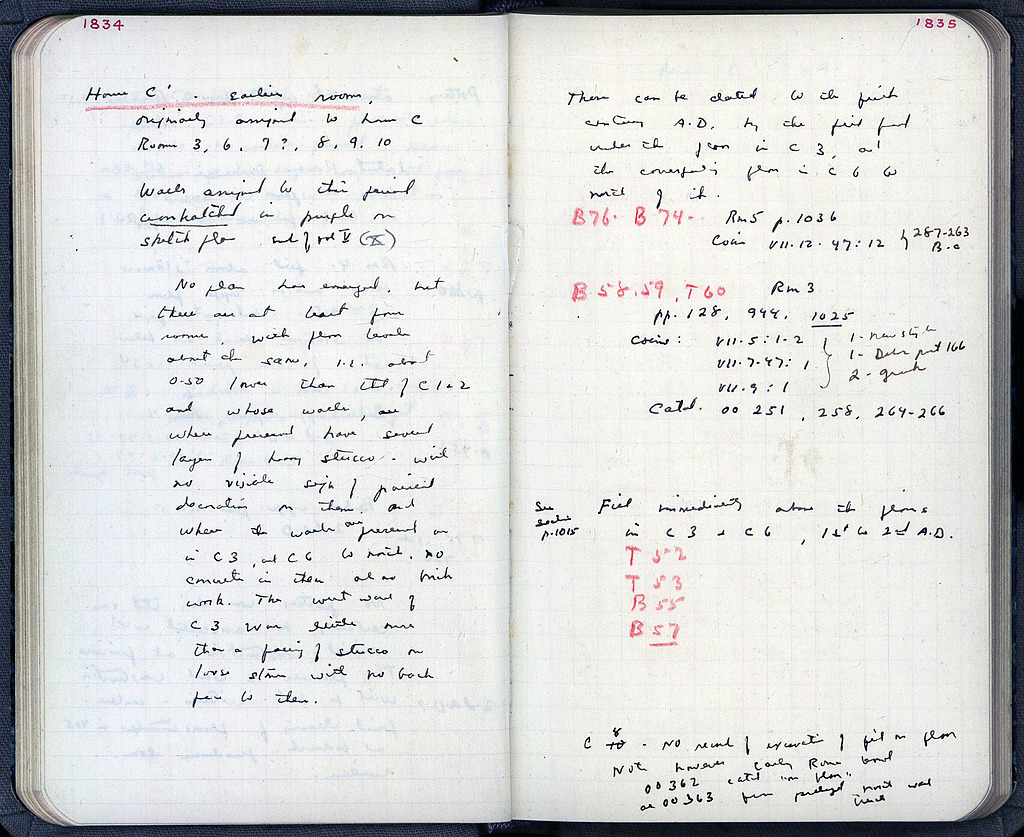 1834
House C'. earlier rooms,
originally assigned to house C
Rooms 3, 6, 7?, 8, 9, 10
Walls assigned to this period
crosshatched in purple on
sketch plan end of vol V (X)
No plan has emerged, but
there are at least four
rooms with floor levels
about the same, i.e. about
0.50 lower than that of C 1 & 2
and whose walls, are
where preserved have several
layers of heavy stucco - with
no visible sign of painted
decoration on them, and
where the walls are preserved as
in C 3, and C 6 to north, no
concrete in them and no brick
work. The west wall of
C 3 was little more
than a facing of stucco on
loose stones with no back
face to them.
1835
These can be dated to the first
century A.D. by the fill found
under the floor in C 3, and
the corresponding floor in C 6 to
north of it.
B 76. B 74- Rm 5 p. 1036
Coins VII.12.47:12 } 287-263 B.C
B 58.59, T 60 Rm 3
pp. 128, 944, 1025
Coins: VII.5:1-2
VII.7.47:1
VII.9:1
1- new style
1- Delos 166
2- greek
Catal. 00 251, 258, 264-266
See earlier p.1015
Fill immediately above the floors
in C 3 & C 6, 1st to 2nd A.D.
T 52
T 53
B 55
B 57
C 8 - No record of excavation of fill on floor
Note however early Roman bowl
00 362 catal "on floor"
and 00 363 from north wall trench